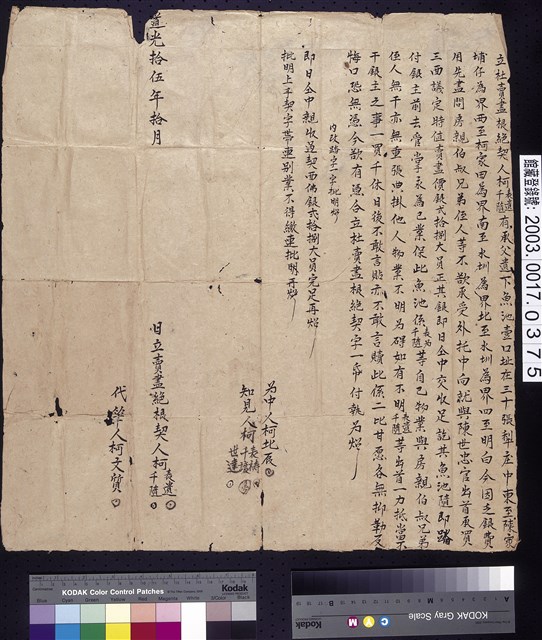 立杜賣盡根絕契人柯長遺千隨有承父遺下魚池壹口址在三十張犁庄中東至陳家
埔仔為界西至柯家田為界南至水圳為界北至水圳為界四至明白今因乏銀費
用先盡問房親伯叔兄弟侄人等不欲承受外托中向就與陳世忠官出首承買
三面議定時值賣盡價銀貳拾捌大員正其銀即日仝中交收足訖其魚池隨即踏
付銀主前去管掌永為己業保此魚池係長為千隨等自己物業與房親伯叔兄弟
侄人無干亦無重張典掛他人物業不明為碍如有不明長遺千隨等出首一力抵當不
干銀主之事一買千休日後不敢言貼亦不敢言贖此係二比甘愿各無抑勒反
悔口恐無憑今欲有憑合立杜賣盡根絕契字一帋付執為炤
內改踏字一字批明炤
即日仝中親收過契內佛銀貳拾捌大員完足再炤
批明上手契字帶連別業不得繳連批明再炤
為中人柯北辰
知見人柯長禱千接世達
日立賣盡絕根契人柯長遺千隨
代筆人柯文質
道光拾伍年拾月
館藏登錄號: 2003.001.0375
KODAK Color Control Patches
Kodak
Blue Cyan Green Yellow Red Magenta White 3/Color Black
KODAK Gray Scale
Kodak
C Y M
A M B